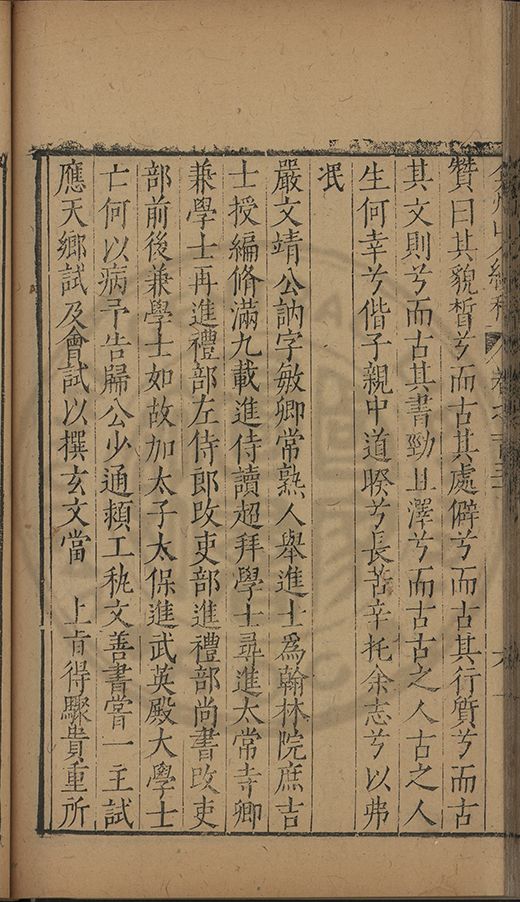 贊曰其貌晳兮而古其處僻兮而古其行質兮而古
其文則兮而古其書勁且澤兮而古古之人古之人
生何幸兮偕子親中道暌兮長苦辛托余志兮以弗
泯
嚴文靖公訥字敏卿常熟人舉進士爲翰林院庶吉
士授編脩滿九載進侍讀超拜學士尋進太常寺卿
兼學士再進禮部左侍郎改吏部進禮部尚書改吏
部前後兼學士如故加太子太保進武英殿大學士
亡何以病予告歸公少通頼工秇文善書嘗一主試
應天鄉試及會試以撰玄文當　上旨得驟貴重所